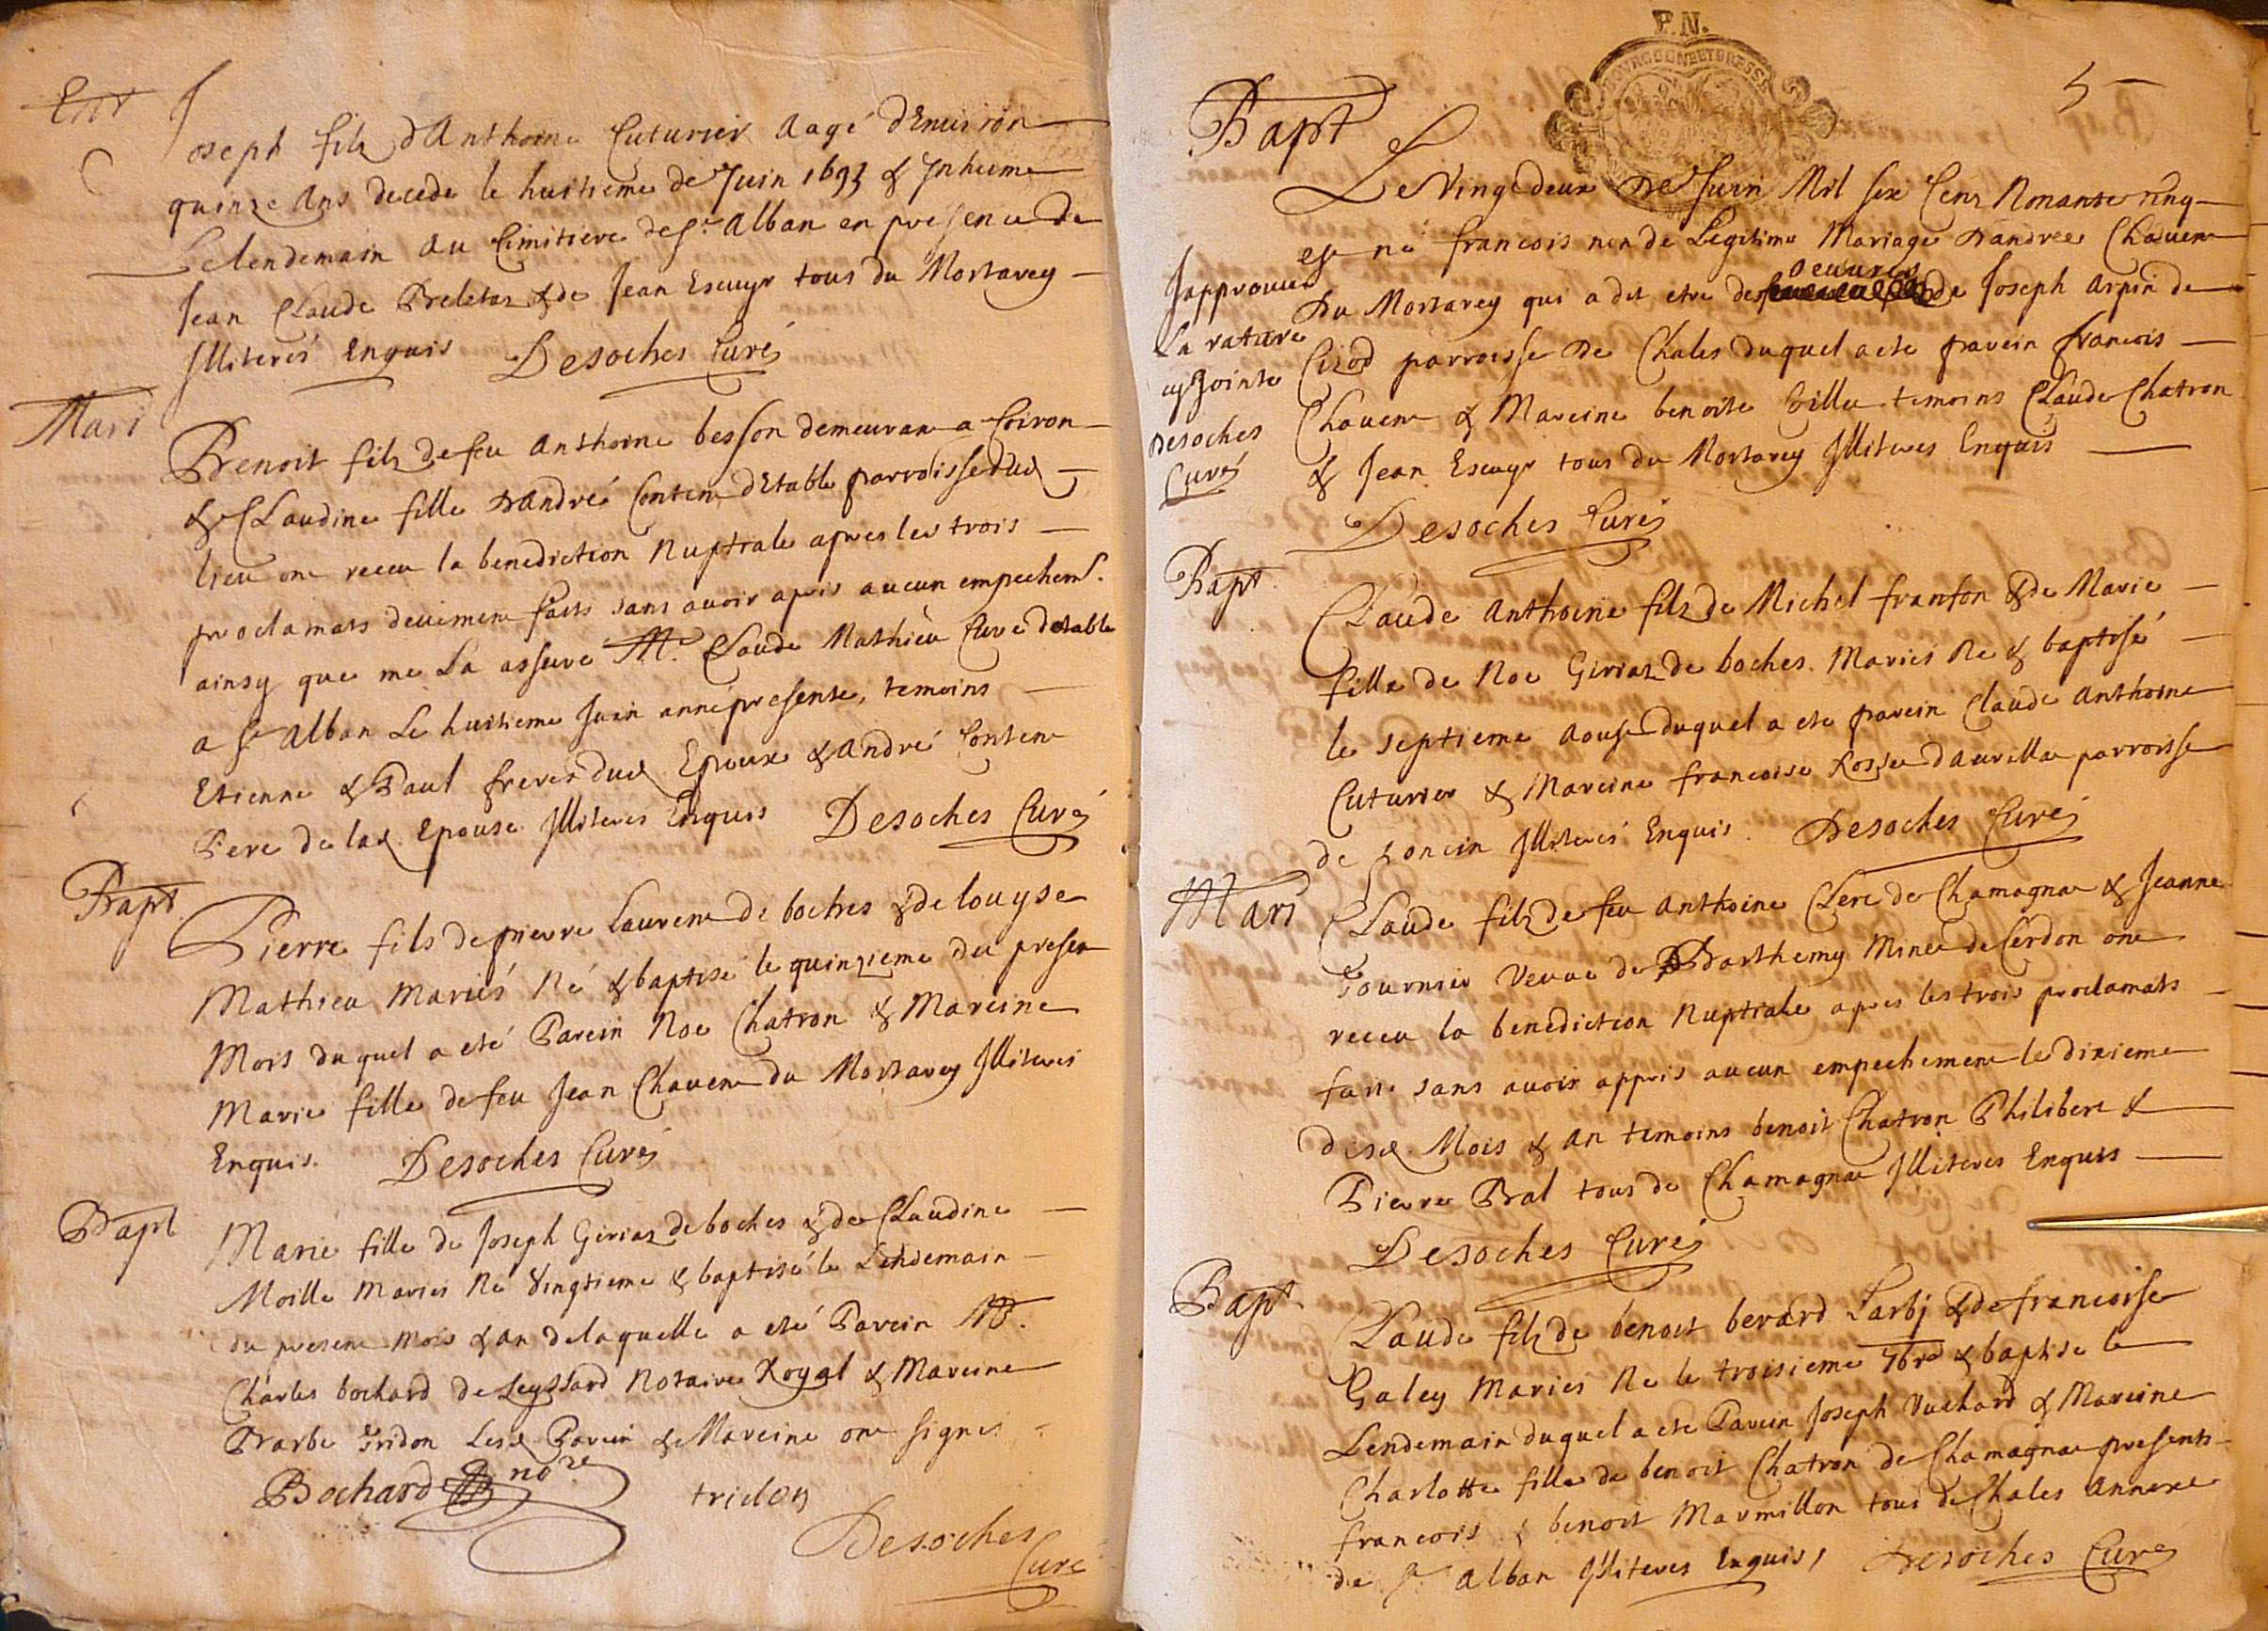 Ent
Joseph filz dAnthoine Cuturier aagé dEnuiron
quinze Ans decede le huitieme de Juin 1695 & Jnhume
Lelendemain au Cimitiere de St Alban en presence de
Jean Claude Beletaz & de Jean Escuyr tous du Mortarey
Jlliteres Enquis Desoches Curé
Mari
Benoit filz de feu Anthoine besson demeurant a Coiron
& Claudine fille dandré Content dEtable parroisse dud
lieu ont receu la benediction Nuptiale apres les trois
proclamats deuement faits sans auoir apris aucun empechemt.
ainsy que me La asseure Mre Claude Mathieu Curé detable
a St Alban Le huitieme Juin année presente, temoins
Etienne & Paul freres dud Epoux & André Content
Pere de lad Epouse Jlliteres Enquis Desoches Curé
Bapt
Pierre fils de pierre Laurent de boches & de louyse
Mathieu Mariés Né & baptisé le quinzieme du present
Mois duquel a eté Parein Noe Chatron & Mareine
Marie fille de feu Jean Chauent du Mortarey Jlliteres
Enquis. Desoches Curé
Bapt
Marie fille de Joseph Giriaz de boches & de Claudine
Moille Maries Né Vingtieme & baptisé le Lendemain
du present Mois & an delaquelle a eté Parein Mr.
Charles bochard de Leyssard Notaire Royal & Mareine
Barbe Tridon Lesd Parein & Mareine ont signes
Bochard nore tridon
Desoches
Curé
P.N.
BOURGOGNE ET BRESSE
5
Bapt
Le Vingt deux de Juin Mil six Cent Nonante cinq
est né francois non de Legitime Mariage dandree Chauent
oeuures
du Mortarey qui a dit etre des de Joseph Arpin de
Cizod parroisse de Chales duquel a ete parein francois
Chauent & Mareine benoite Ville temoins Claude Chatron
& Jean Escuyr tous du Mortarey Jlliteres Enquis
Desoches Curé
Japprouue
La rature
cy Jointe
Desoches
Curé
Bapt
Claude Anthoine filz de Michel franson & de Marie
fille de Noe Giriaz de boches. Mariés Ne & baptisé
le septieme aoust duquel a ete parein Claude Anthoine
Cuturier & Mareine francoise Rosset dauvillae parroisse
de poncin Jlliteres Enquis. Desoches Curé
Mari
Claude filz de feu Anthoine Clerc de Chamagnat & Jeanne
Fournier Veuue de Barthemy Minet de Cerdon ont
receu la benediction Nuptiale apres les trois proclamats
faits sans auoir appris aucun empechement le dixieme
disd Mois & an temoins benoit Chatron Philibert &
Pierre Bal tous de Chamagnat Jlliteres Enquis
Desoches Curé
Bapt
Claude filz de benoit berard Larbj & de francoise
Galey Maries Ne le troisieme 7bre & baptise le
Lendemain duquel a ete Parein Joseph Vuchard & Mareine
Charlotte fille de benoit Chatron de Chamagnat presents
francois & benoit Marmillon tous de Chales Annexe
de St Alban Jlliteres Enquis, Desoches Curé